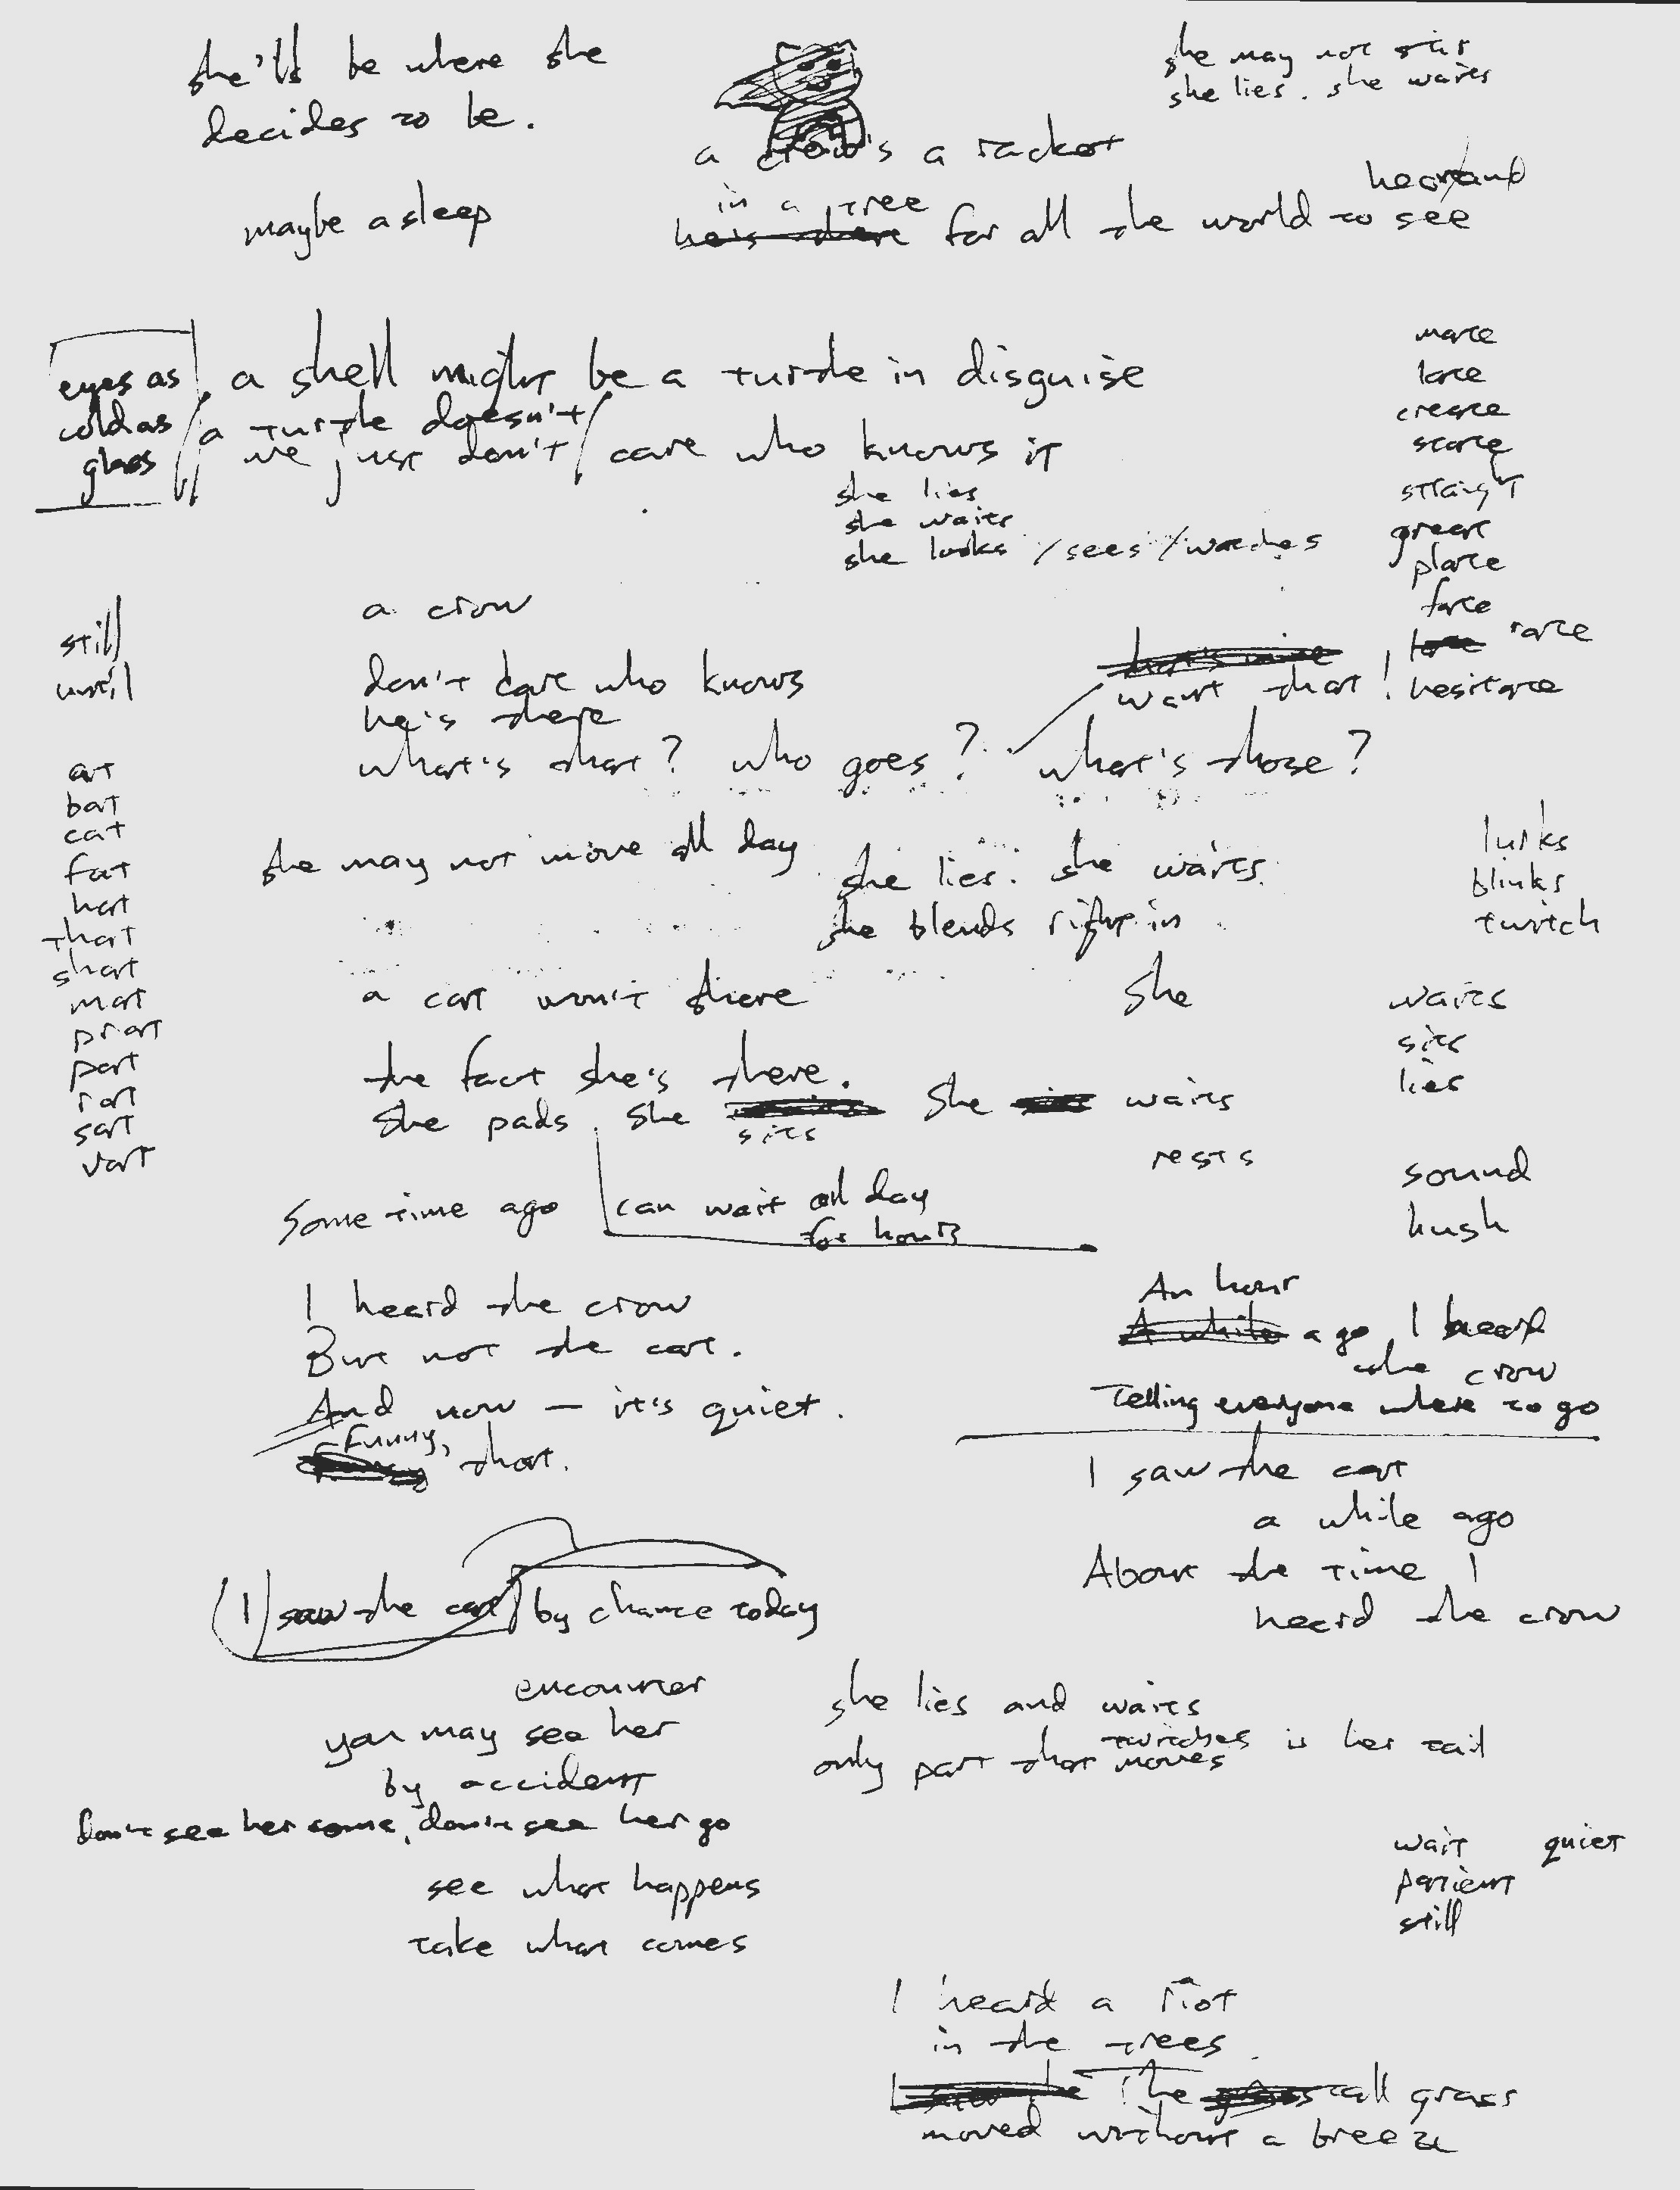 she'll be where she
decides to be.
she may not stir
she lies. she waits
a crow's a racket
maybe asleep
in a tree
hear and
he's there for all the world to see
eyes as
cold as
glass
a shell might be a turtle in disguise
a turtle doesn't
we just don't care who knows it
she lies
she waits
she looks / sees / watches
mate
late
create
scate
straight
great
plate
fate
rate
hesitate
still
until
a crow
don't care who knows
he's there
want that!
what's that? who goes? what's those?
at
bat
cat
fat
hat
that
shat
mat
prat
pat
rat
sat
vat
she may not move all day
she lies. she waits.
she blends right in
lurks
blinks
twitch
a cat won't there
the fact she's there.
she pads. she she waits
sits
rests
she
waits
sits
lies
sound
hush
Some time ago
can wait all day
for hours
I heard the crow
But not the cat.
And now — it's quiet.
Funny, that.
An hour
A while ago I heard
the crow
Telling everyone where to go
I saw the cat
a while ago
About the time I
heard the crow
(I) saw the cat by chance today
encounter
you may see her
by accident
don't see her come, don't see her go
see what happens
take what comes
she lies and waits
twitches
only part that moves is her tail
wait quiet
patient
still
I heard a riot
in the trees.
The grass tall grass
moved without a breeze